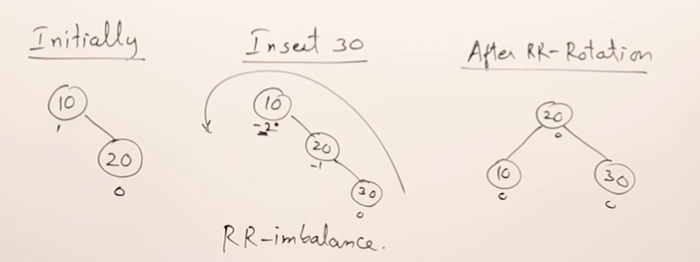 Initially
10
1
20
0
Insert 30
10
-2
20
-1
30
0
RR-imbalance.
After RR-Rotation
20
0
10
0
30
0